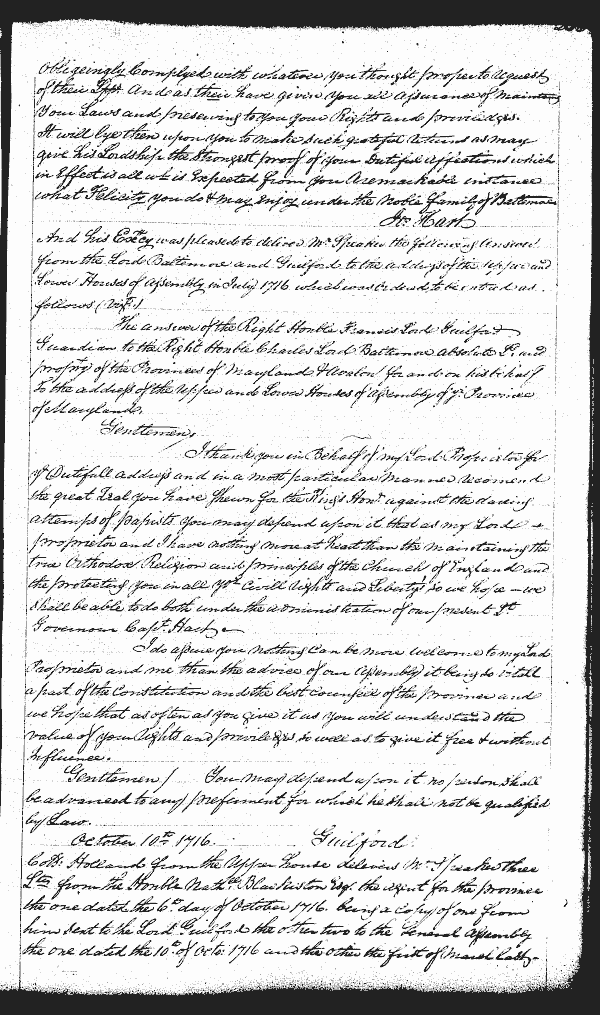 Obligeingly Complyed with whatever you thought proper to request
of their Lpps And as their have given you all assurance of maintng
Your Laws and preserving to you your Rights and priviledges.
It will lye then upon you to make such grateful returns as may
give his Lordship the Strongest proof of your Dutifull affections which
in Effect is all wt is Expected from you A remarkable instance
what Felicity you do & may Enjoy under the Noble family of Baltemore
Jo: Hart
And his Excy was pleased to deliver Mr Speaker the following answer
from the Lord Baltemore and Guilford to the address of the upper and
Lower Houses of Assembly in July 1716 which was ordered to be entred as
follows (vizt)
The answer of the Right Honble Francis Lord Guilford
Guardian to the Right Honble Charles Lord Baltemore absolute Ld and
proptry of the Provinces of Maryland & Avelon for and on his behalf
To the address of the Upper and Lower Houses of Assembly of ye Province
of Maryland.
Gentlemen,
I thank you in Behalf of my Lord Proprietor for
yr Dutifull address and in a most particular Manner recomend
the great Zeal you have shewn for the King's Honr against the daring
attemps of papists you may depend upon it that as my Lord
proprietor and I have nothing more at heart than the maintaining the
true Orthodox Religion and principles of the Church of England and
the protecting you in all yor Civill Rights and Libertys so we hope we
shall be able to do both under the administration of our present Lt
Governour Capt. Hart
I do assure you nothing Can be more welcome to my Lord
Proprietor and me than the advice of our Assembly it being so vitall
a part of the Constitution and the best councell of the province and
we hope that as often as you give it us you will understand the
value of your Rights and priviledges so well as to give it free & without
Influence.
Gentlemen / You may depend upon it no person shall
be advanced to any preferment for which he shall not be qualified
by Law.
October 10th 1716. Guilford
Collo: Holland from the Upper house delivers Mr Speaker three
Lrs from the Honble Nathll Blackiston Esqr the agent for the province
the one dated the 6th day of October 1716. being a copy of one from
him sent to the Lord Guilford the other two to the General Assembly
the one dated the 10th of Octo: 1716 and the other the first of March last